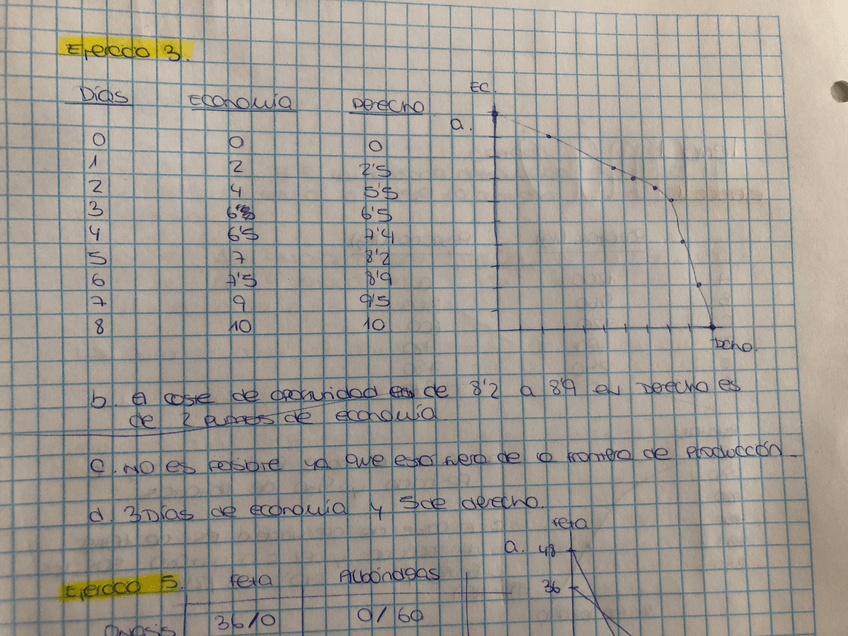 Ejercicio 3.
Días Economía Derecho
0 0 0
1 2 2'5
2 4 5'5
3 6'5
4 6'5 7'4
5 7 8'2
6 7'5 8'9
7 9 9'5
8 10 10
EC.
a.
Dcho.
b. el coste de oportunidad de 8'2 a 8'9 en Derecho es
de 2 puntos de economía
c. NO es posible ya que eso fuera de la frontera de producción.
d. 3 Días de economía y 5 de derecho.
Ejercicio 5. feta Albóndigas
36/0 0/60
feta
a. 48
36